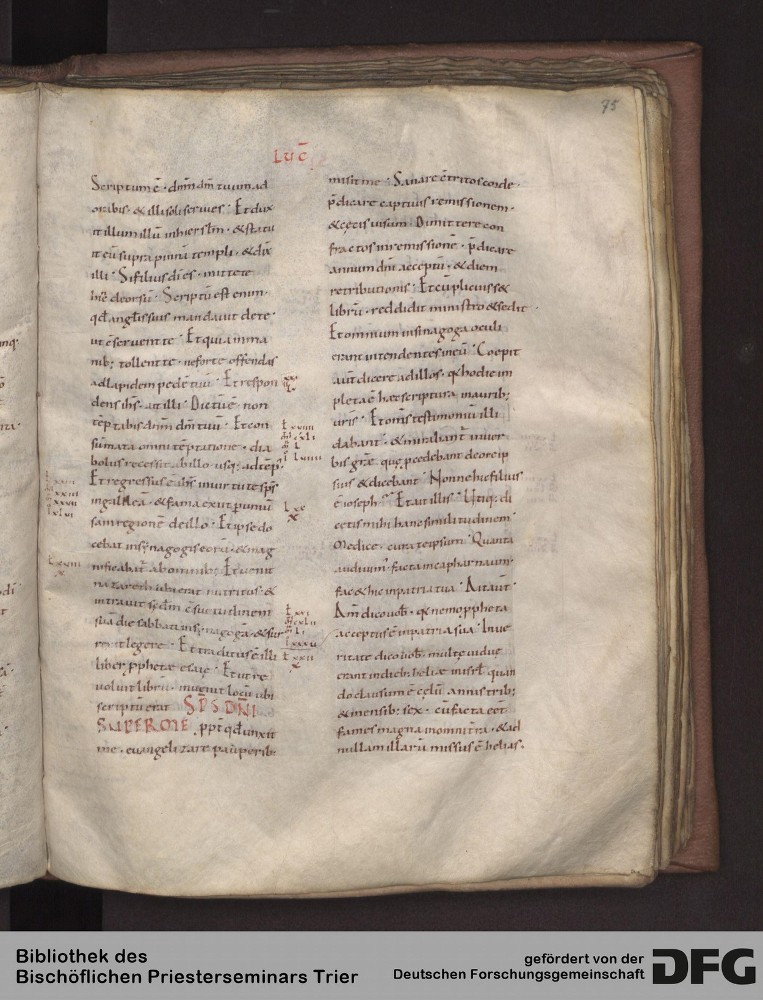 75
LUC̄
Scriptum ē · dn̄m dm̄ tuum ad
orabis · & illi soli servies · Et dux
it illum illū in hierslm̄ · & statu
it eū supra pinnā templi · & dix̄
illi · Si filius dī es · mitte te
hinc deorsū · Scriptū est enim ·
qđ angłis suis mandavit de te ·
ut cōservent te · Et quia in ma
nib; tollent te · ne forte offendas
ad lapidem pedē tuū · Et respon
dens ihs̄ · ait illi · Dictū ē non
tēptabis dn̄m dm̄ tuū · Et con
sūmata omni tēptatione · dia
bolus recessit ab illo usq; ad tēp̄ ·
Et regressus ē ihs̄ in virtute sp̄s
in galileā · & fama exiit p̄ univū
sam regionē de illo · Et ipse do
cebat in synagogis eorū · & mag
nificabat̄ ab omnib; Et venit
nazareth ubi erat nutritus · &
intravit scdm̄ cōsuetudinem
suā die sabbati in synagogā · & sur
rexit legere · Et traditus ē illi
liber pphetae esaię · Et ut re
voluit librū · invenit locū ubi
scriptū erat SP̄S DN̄I
SUPER ME ppt̄ qđ unxit
me · evangelizare paup̄erib;
misit me · Sanare cōtritos corde ·
p̄dicare captivis remissionem ·
& cęcis visum · Dimittere con
fractos in remissionē · p̄dicare
annum dn̄i acceptū · & diem
retributionis · Et cū plicuisse&
librū · reddidit ministro & sedit ·
Et omnium in sinagoga oculi
erant intendentes in eū · Coepit
aut̄ dicere ad illos · q̄ hodie im
pleta ē haec scriptura in aurib;
vr̄is · Et om̄s testimoniū illi
dabant · & mirabant̄ in ver
bis gr̄ae · quę p̄cedebant de ore ip
sius & dicebant · Nonne hic filius
ē ioseph · Et ait illis · Utiq; di
cetis mihi hanc similitudinem ·
Medice · cura te ipsum · Quanta
audivim̄ · facta in capharnaum ·
fac & hic in patria tua · Ait aut̄ ·
Am̄ dico vob̄ · q̄ nemo ppheta
acceptus ē in patria sua · In ve
ritate dico vob̄ · multę viduę
erant in dieb; heliae in isrł · quan
do clausum ē cęlū annis trib;
& mensib; sex · cū facta eēt
fames magna in omni tr̄a · & ad
nullam illarū missus ē helias ·
Bibliothek des
Bischöflichen Priesterseminars Trier
gefördert von der
Deutschen Forschungsgemeinschaft
DFG